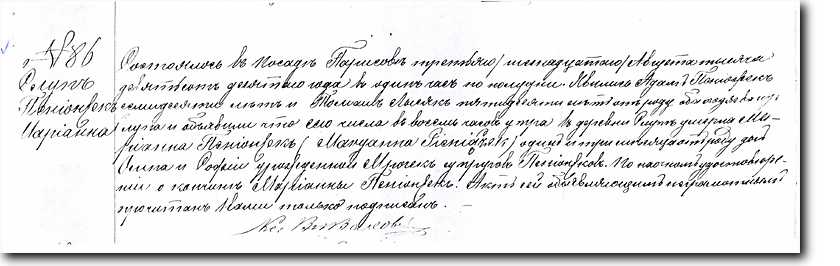 № 86
Слупъ
Пеніонжекъ
Маріанна
Состоялось въ посадѣ Парисовѣ третьяго/шестнадцатаго/Августа тысяча
девятьсотъ десятаго года въ одинъ часъ по полудни. Явились Адамъ Пеніонжекъ
семидесяти лѣтъ и Томашъ Лысякъ пятидесяти лѣтъ отъ роду оба
Слупа и объявили что сего числа въ восемь часовъ утра въ деревнѣ Слупъ умерла Ма-
ріанна Пеніонжекъ (Maryanna Pieniążek) одинъ отъ роду дочь
Осипа и Софіи урожденной Мрочекъ супруговъ Пеніонжковъ. По настоящемъ удостовѣре-
ніи о кончинѣ Маріанны Пеніонжекъ. Актъ сей объявляющимъ неграмотнымъ
прочитанъ Нами только подписанъ. —
Кс.